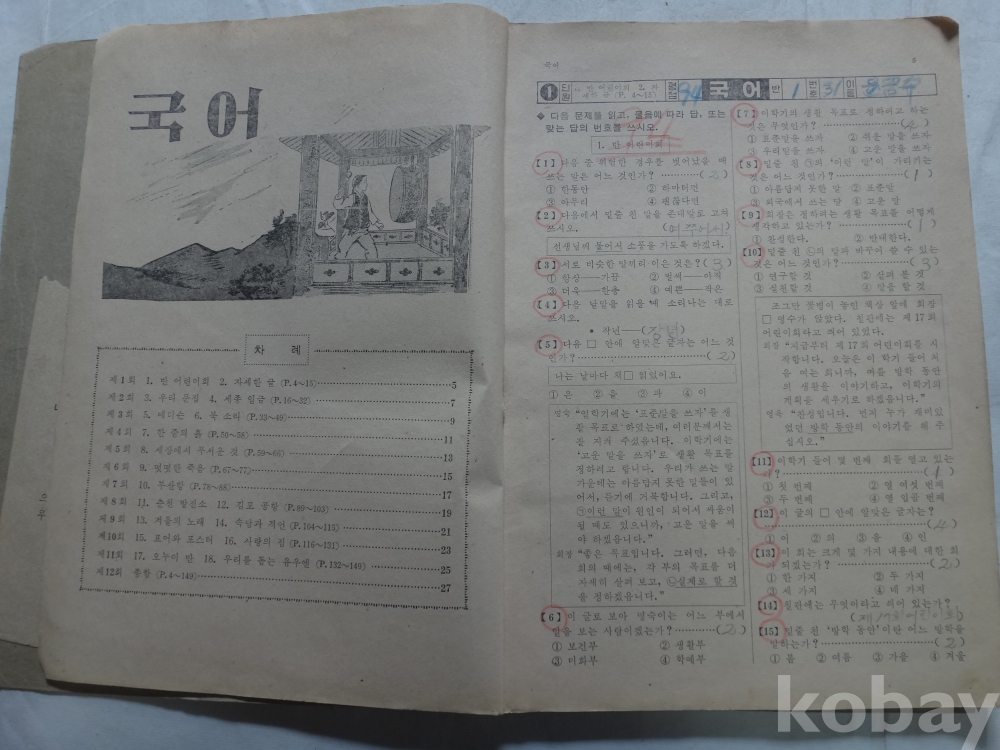 국어
차 례
제1회 1. 만 어린이회 2. 자세한 글 (P.4~15) 5
제2회 3. 우리 문집 4. 세종 임금 (P.16~32) 7
제3회 5. 에디슨 6. 북 소리 (P.33~49) 9
제4회 7. 한 줌의 흙 (P.50~58) 11
제5회 8. 세상에서 무서운 것 (P.59~66) 13
제6회 9. 떳떳한 죽음 (P.67~77) 15
제7회 10. 부산항 (P.78~88) 17
제8회 11. 춘천 발전소 12. 김포 공항 (P.89~103) 19
제9회 13. 겨울의 노래 14. 속담과 격언 (P.104~115) 21
제10회 15. 표어와 포스터 16. 사랑의 집 (P.116~131) 23
제11회 17. 오누이 만 18. 우리를 돕는 유우엔 (P.132~149) 25
제12회 종합 (P.4~149) 27
국어
❶ 단원 만 어린이회 2. 자세한 글 (P. 4~15) 94 국어 반 1 번호 31 이름
◆ 다음 문제를 읽고, 물음에 따라 답, 또는
맞는 답의 번호를 쓰시오.
1. 만 어린이회
【1】 다음 중 위험한 경우를 벗어났을 때
쓰는 말은 어느 것인가? (2)
① 한동안 ② 하마터면
③ 아무리 ④ 괜찮다면
【2】 다음에서 밑줄 친 말을 존대말로 고쳐
쓰시오.
선생님께 물어서 소풍을 가도록 하겠다.
【3】 서로 비슷한 말끼리 이은 것은? (3)
① 항상──가끔 ② 벌써──아직
③ 더욱──한층 ④ 예쁜──작은
【4】 다음 낱말을 읽을 때 소리나는 대로
쓰시오.
• 작년──(장년)
【5】 다음 □ 안에 알맞은 글자는 어느 것
인가? (2)
나는 날마다 책□ 읽었어요.
① 은 ② 을 ③ 과 ④ 이
영숙 “이학기에는 ‘표준말을 쓰자’를 생
활 목표로 하였는데, 여러분께서는
잘 지켜 주셨읍니다. 이학기에는
‘고운 말을 쓰자’로 생활 목표를
정하려고 합니다. 우리가 쓰는 말
가운데는 아름답지 못한 말들이 있
어서, 듣기에 거북합니다. 그리고,
㉠이런 말이 원인이 되어서 싸움이
될 때도 있으니까, 고운 말을 써
야 하겠읍니다.”
회장 “좋은 목표입니다. 그러면, 다음
회의 때에는, 각 부의 목표를 더
자세히 살펴 보고, ㉡실제로 할 것
을 정하겠읍니다.”
【6】 이 글로 보아 영숙이는 어느 부에서
일을 보는 사람이겠는가? (2)
① 보건부 ② 생활부
③ 미화부 ④ 학예부
【7】 이학기의 생활 목표로 정하려고 하는
것은 무엇인가?
① 표준말을 쓰자 ② 쉬운 말을 쓰자
③ 우리말을 쓰자 ④ 고운 말을 쓰자
【8】 밑줄 친 ㉠의 ‘이런 말’이 가리키는
것은 어느 것인가? (1)
① 아름답지 못한 말 ② 표준말
③ 외국에서 쓰는 말 ④ 고운 말
【9】 회장은 정하려는 생활 목표를 어떻게
생각하고 있는가? (1)
① 찬성한다. ② 반대한다.
【10】 밑줄 친 ㉡의 말과 바꾸어 쓸 수 있는
것은 어느 것인가? (3)
① 연구할 것 ② 살펴 볼 것
③ 실천할 것 ④ 말을 할 것
조그만 꽃병이 놓인 책상 앞에 회장
□ 영수가 앉았다. 칠판에는 제17회
어린이회라고 씌어 있었다.
회장 “지금부터 제17회 어린이회를 시
작합니다. 오늘은 이 학기 들어 처
음 여는 회니까, 여름 방학 동안
의 생활을 이야기하고, 이학기의
계획을 세우기로 하겠읍니다.”
영욱 “찬성입니다. 먼저 누가 재미있
었던 방학 동안의 이야기를 해 주
십시오.”
【11】 이학기 들어 몇 번째 회를 열고 있는
가? (1)
① 첫 번째 ② 열 여섯 번째
③ 두 번째 ④ 열 일곱 번째
【12】 이 글의 □ 안에 알맞은 글자는?
(4)
① 이 ② 의 ③ 을 ④ 인
【13】 이 회는 크게 몇 가지 내용에 대한 회
가 되겠는가? (2)
① 한 가지 ② 두 가지
③ 세 가지 ④ 네 가지
【14】 칠판에는 무엇이라고 씌어 있는가?
(제17회 어린이회)
【15】 밑줄 친 ‘방학 동안’이란 어느 방학을
말하는가? (2)
① 봄 ② 여름 ③ 가을 ④ 겨울
kobay